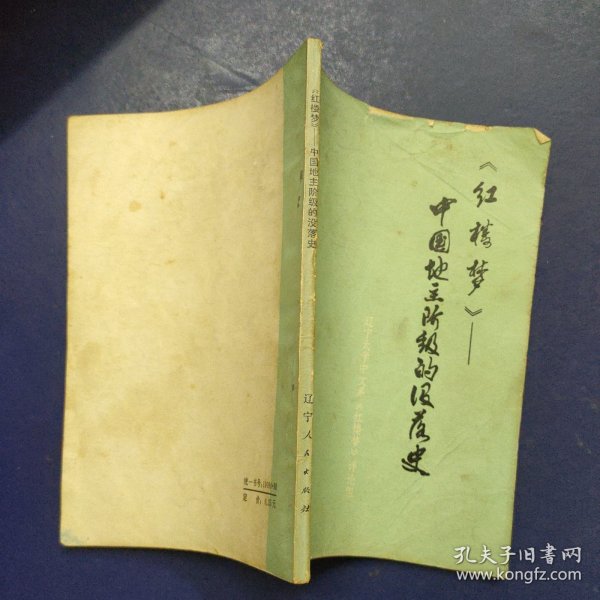 《红楼梦》——
中国地主阶级的没落史
辽宁大学中文系《红楼梦》评论组
《红楼梦》——中国地主阶级的没落史
辽宁人民出版社
统一书号:
定价:
元
孔夫子旧书网
www.kongfz.com